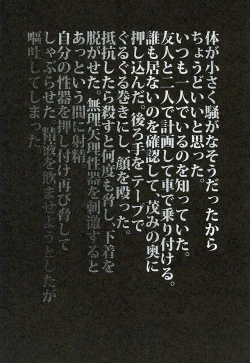 体が小さく騒がなそうだったから
ちょうどいいと思った。
いつも一人でいるのを知っていた。
友人と二人で計画して車で乗り付ける。
誰も居ないのを確認して 茂みの奥に
押し込んだ。後ろ手をテープで
ぐるぐる巻きにし、顔を殴った。
抵抗したら殺すと何度も脅し、下着を
脱がせた。無理矢理性器を刺激すると
あっという間に射精
自分の性器を押し付け再び脅して
しゃぶらせた 精液を飲ませようとしたが
嘔吐してしまった